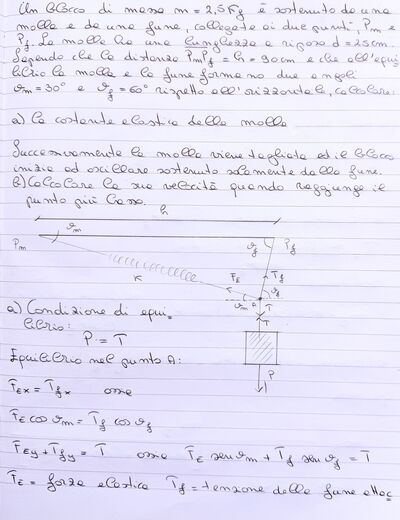 Un blocco di massa m = 2,5 Kg è sostenuto da una
molla e da una fune, collegate ai due punti, Pm e
Pf. La molla ha una lunghezza a riposo d = 25 cm.
Sapendo che la distanza PmPf = h = 90 cm e che all'equi-
librio la molla e la fune formano due angoli
ϑm = 30° e ϑf = 60° rispetto all'orizzontale, calcolare:
a) la costante elastica della molla
Successivamente la molla viene tagliata ed il blocco
inizia ad oscillare sostenuto solamente dalla fune.
b) Calcolare la sua velocità quando raggiunge il
punto più basso.
h
ϑm
Pm
ϑf
Pf
K
FE
Tf
ϑm
A
ϑf
T
T
P
a) Condizione di equi-
librio:
P = T
Equilibrio nel punto A:
FEx = Tfx ossia
FE cos ϑm = Tf cos ϑf
FEy + Tfy = T ossia FE sen ϑm + Tf sen ϑf = T
FE = forza elastica Tf = tensione della fune attac